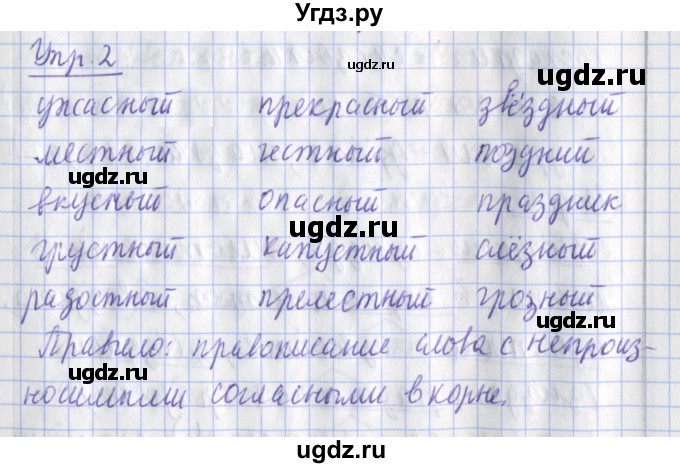 Угдз.ру
Упр. 2
ugdz.ru
ugdz.ru
ужасный прекрасный звёздный
местный честный поздний
ugdz.ru
вкусный опасный праздник
ugdz.ru
грустный капустный слёзный
ugdz.ru
радостный прелестный грозный
Правило: правописание слова с непроиз-
ugdz.ru
носимыми согласными в корне.
ugdz.ru
ugdz.ru